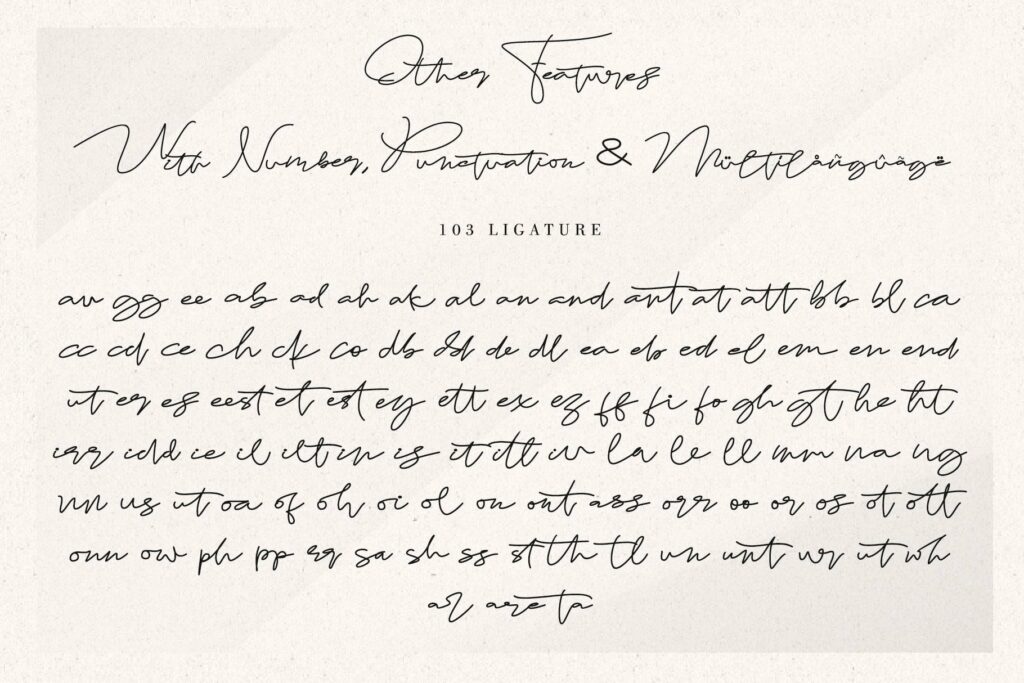 Other Features
With Number, Punctuation & Mültilåñgûãgë
103 LIGATURE
av gg ee ab ad ah ak al an and ant at att bb bl ca
cc cd ce ch ck co db dd de dl ea eb ed el em en end
ut er es eest et est ey ett ex ez ff fi fo gh gt he ht
irr idd ie il ilt in is it itt iv la le ll mm na ng
nn us ut oa of oh oi ol on ont ass orr oo or os ot ott
onn ow ph pp rr sa sh ss st th tl un unt ur ut wh
ar are ta